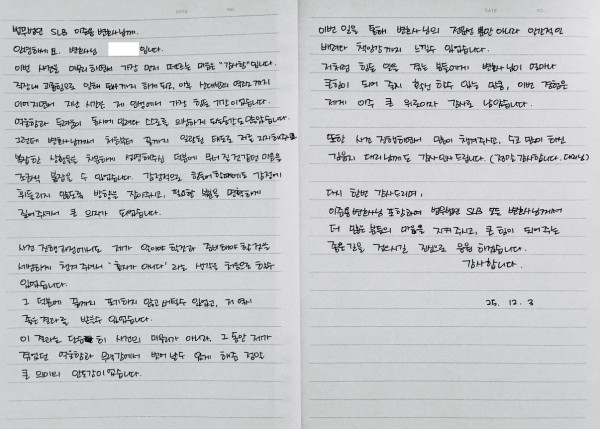 법무법인 SLB 이주용 변호사님께.
안녕하세요. 변호사님 입니다.
이번 사건을 마무리하면서 가장 먼저 떠오르는 마음은 "감사함"입니다.
직장내 괴롭힘으로 인해 퇴사까지 하게 되고, 이후 상대방의 까지
이어지면서 지난 시간은 제 인생에서 가장 힘든 기간이었습니다.
억울함과 두려움이 한꺼번에 밀려와 스스로를 의심하게 되는 순간도 많았습니다.
그런데 변호사님께서 처음부터 끝까지 일관된 태도로 저를 지지해주고
복잡한 상황들을 차분하게 설명해주신 덕분에 무너질 것 같았던 마음을
조금씩 붙잡을 수 있었습니다. 감정적으로 힘들어 할때에도 감정에
휘둘리지 않도록 방향을 잡아주시고, 필요한 부분을 명확하게
짚어주셔서 큰 의지가 되었습니다.
사건 진행 과정에서도 제가 알아야 할 것과 준비해야 할 것을
세밀하게 챙겨 주셔서 "혼자가 아니다" 라는 생각을 처음으로 할 수
있었습니다.
그 덕분에 끝까지 포기하지 않고 버틸수 있었고,
좋은 결과를 받을수 있었습니다.
이 결과는 단순히 사건의 마무리가 아니라, 그동안 제가
억울함과 에서 벗어날수 있게 해준 정말
큰 의미의 이었습니다.
이번 일을 통해 변호사님의 전문성 뿐만 아니라 인간적인
배려와 책임감까지 느낄수 있었습니다.
저처럼 힘든 일을 겪는 분들에게 변호사님이 얼마나
큰 힘이 되어 주시는지 확신 할수 있는 만큼, 이번 경험은
제게 아주 큰 위로이자 감사로 남았습니다.
또한 사건 진행하면서 많이 챙겨주시고, 수고 많이 하신
김윤지 대리님께도 감사의 드립니다. (정말 감사합니다. 대리님)
다시 한번 감사드리며,
이주용 변호사님 포함하여 법무법인 SLB 모든 변호사님께서
더 많은 분들의 마음을 지켜주시고, 큰 힘이 되어주는
좋은 길을 걸으시길 진심으로 응원 하겠습니다.
감사합니다.
25. 12. 3